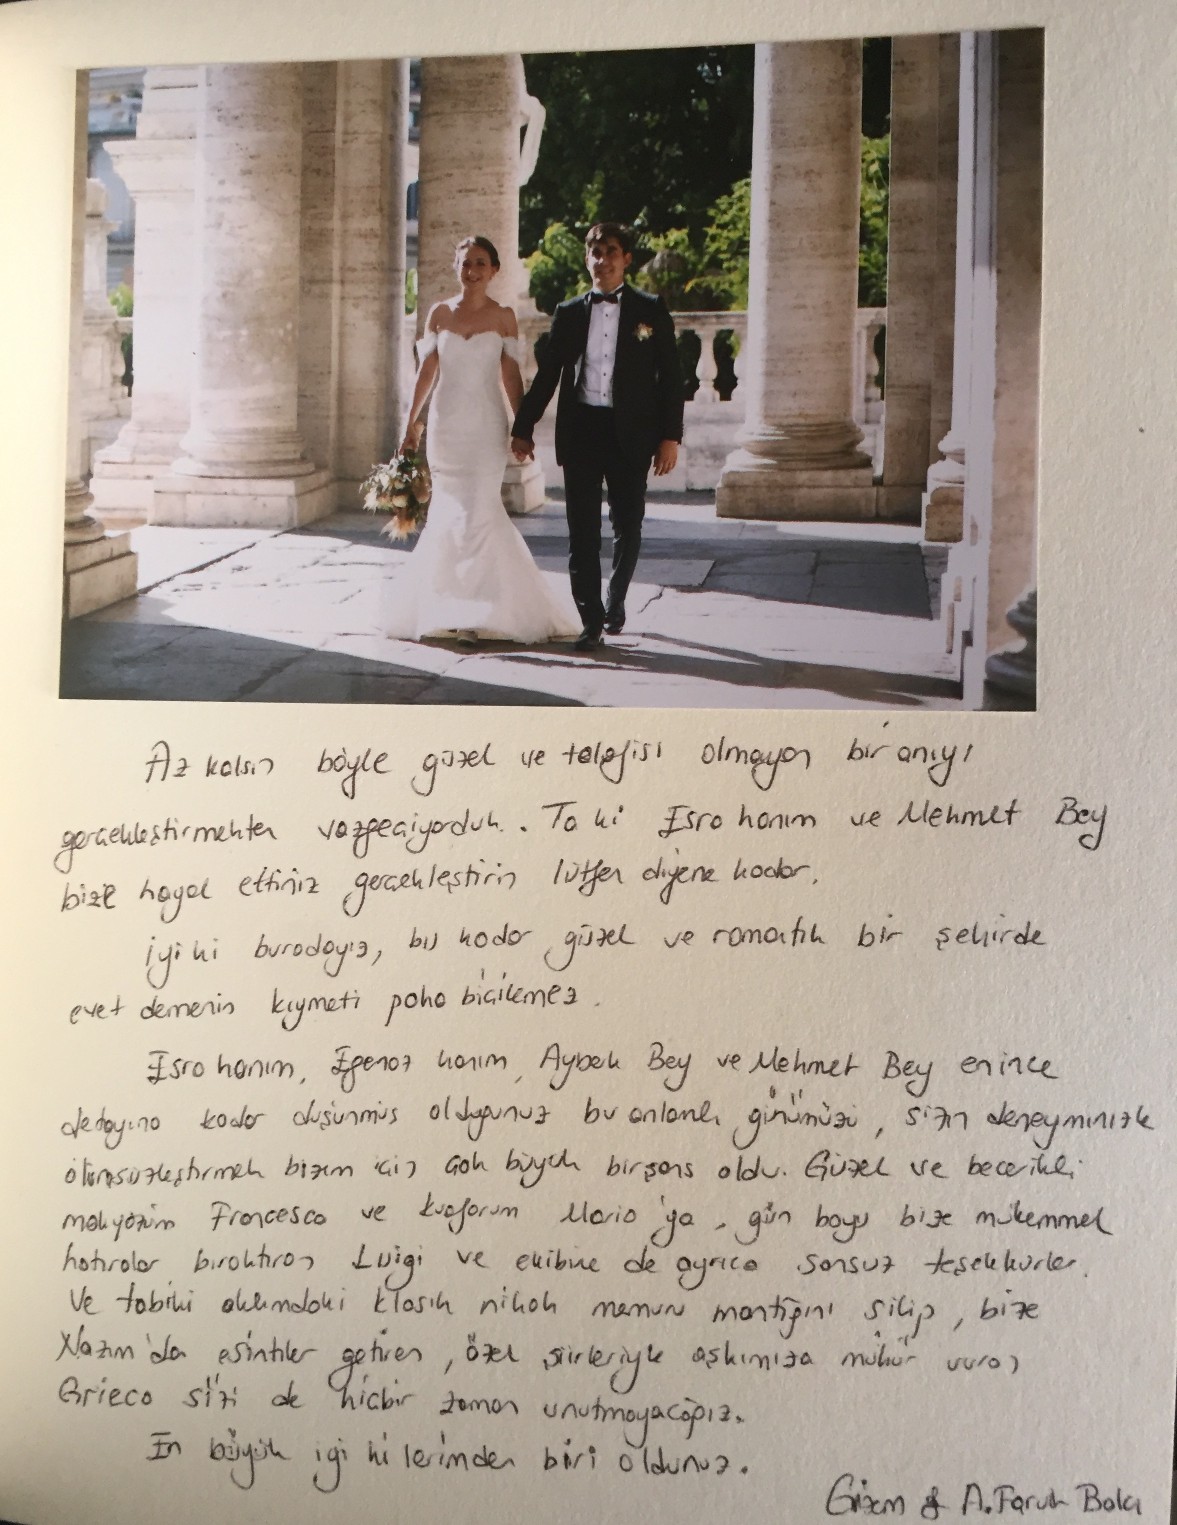 Az kalsın böyle güzel ve telafisi olmayan bir anıyı
gerçekleştirmekten vazgeçiyorduk. Ta ki Esra hanım ve Mehmet Bey
bize hayal ettiniz gerçekleştirin lütfen diyene kadar.
İyi ki buradayız, bu kadar güzel ve romantik bir şehirde
evet demenin kıymeti paha biçilemez.
Esra hanım, Egenaz hanım, Aybek Bey ve Mehmet Bey en ince
detayına kadar düşünmüş olduğunuz bu anlamlı günümüzü, sizin deneyiminizle
ölümsüzleştirmek bizim için çok büyük bir şans oldu. Güzel ve becerikli
makyözüm Francesca ve kuaförüm Mario'ya, gün boyu bize mükemmel
hatıralar bıraktıran Luigi ve ekibine de ayrıca sonsuz teşekkürler.
Ve tabiki aklımdaki klasik nikah memuru mantığını silip, bize
Nazım'dan esintiler getiren, özel şiirleriyle aşkımıza mühür vuran
Grieco sizi de hiçbir zaman unutmayacağız.
En büyük iyi ki lerimden biri oldunuz.
Gizem & A. Faruk Balcı